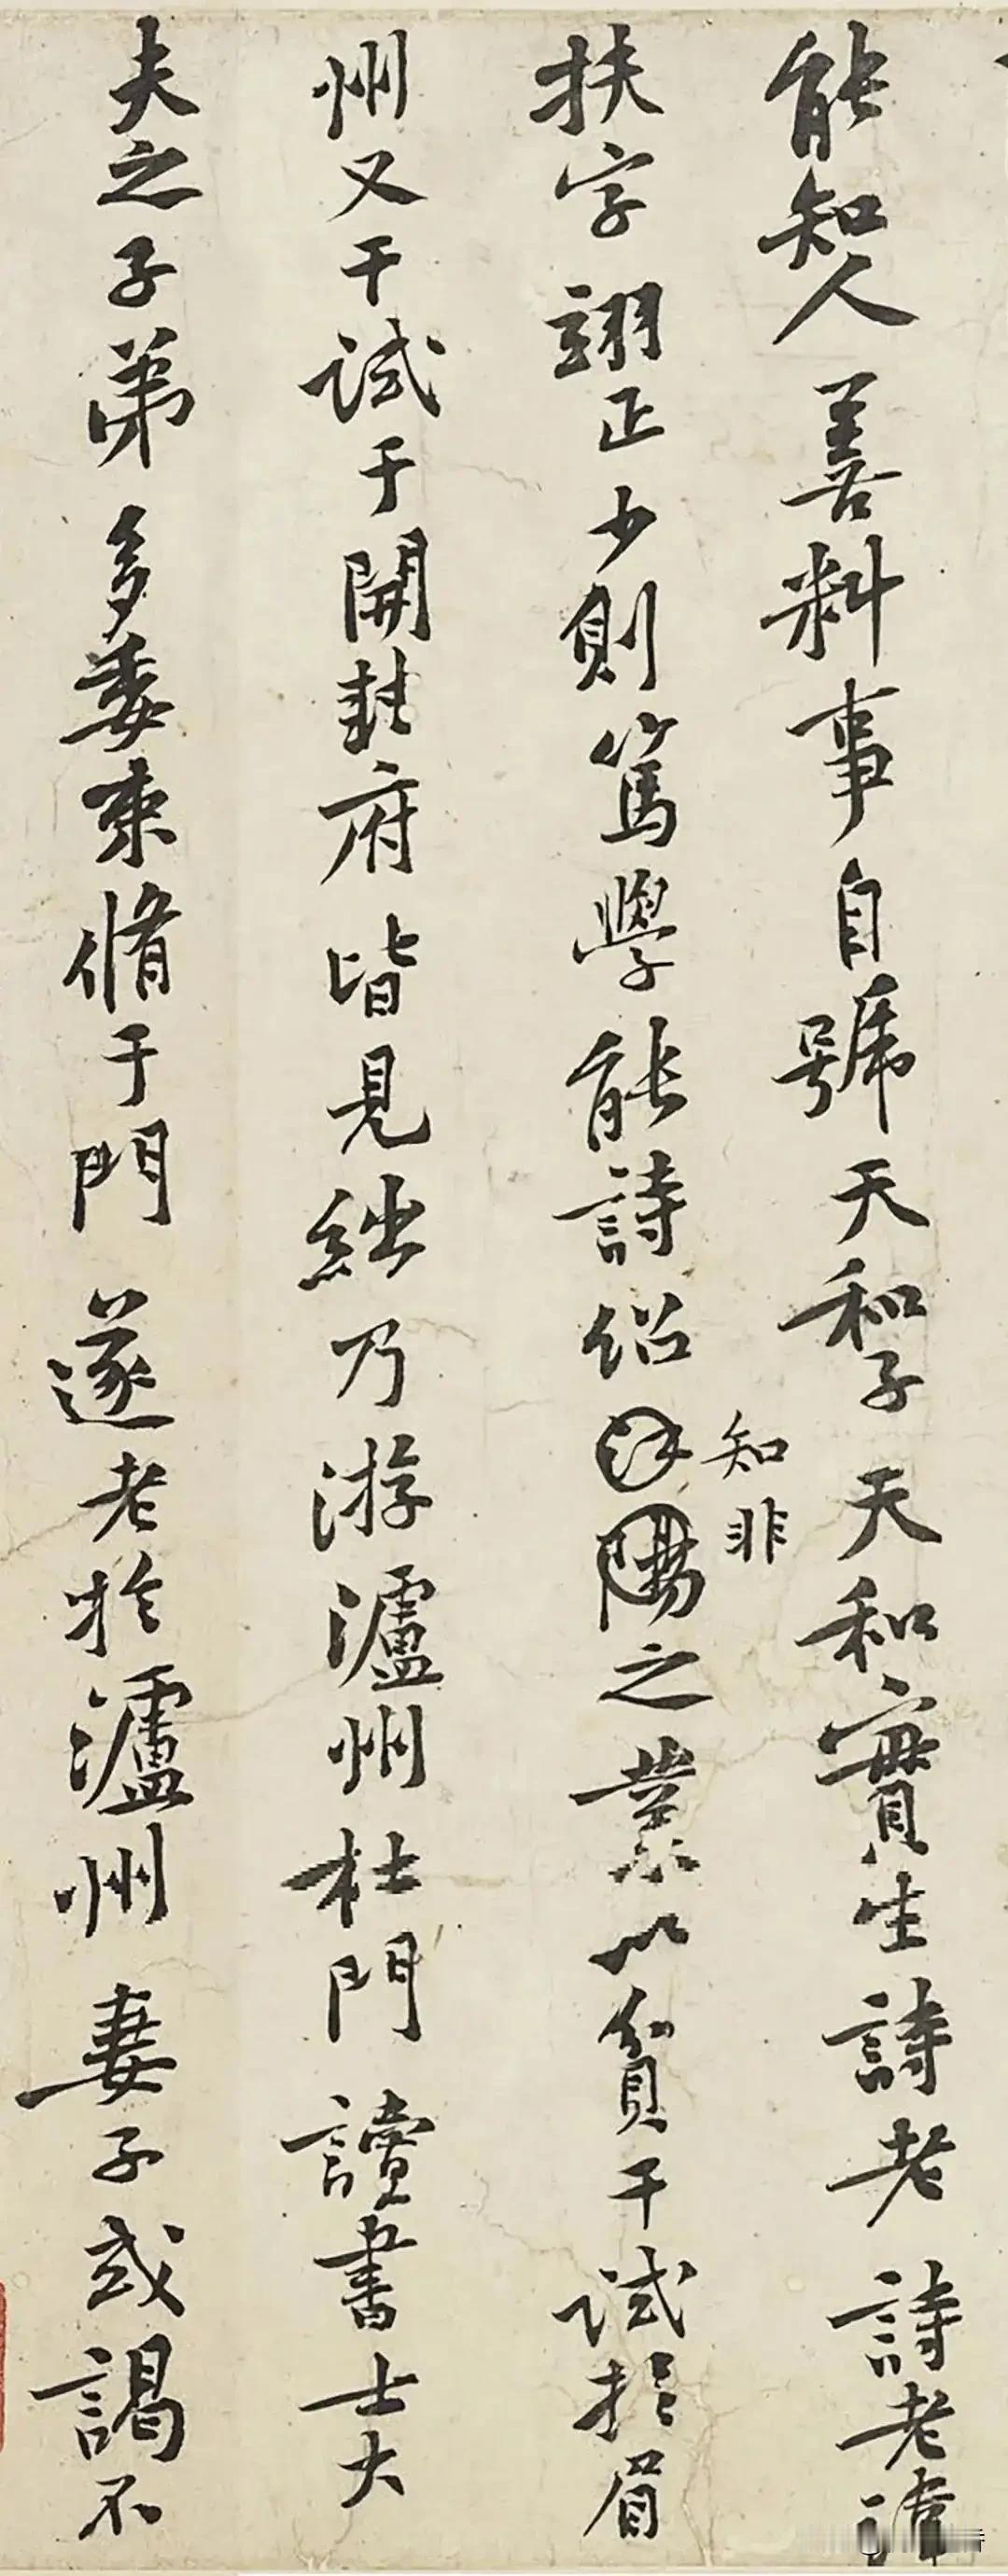 能知人善料事自號天和子天和實生詩老詩老諱
扶字翊正少則篤學能詩紹
知非
之業以貧干試於眉
州又干試于開封府皆見絀乃游瀘州杜門讀書士大
夫之子弟多委束脩于門遂老於瀘州妻子或謁不